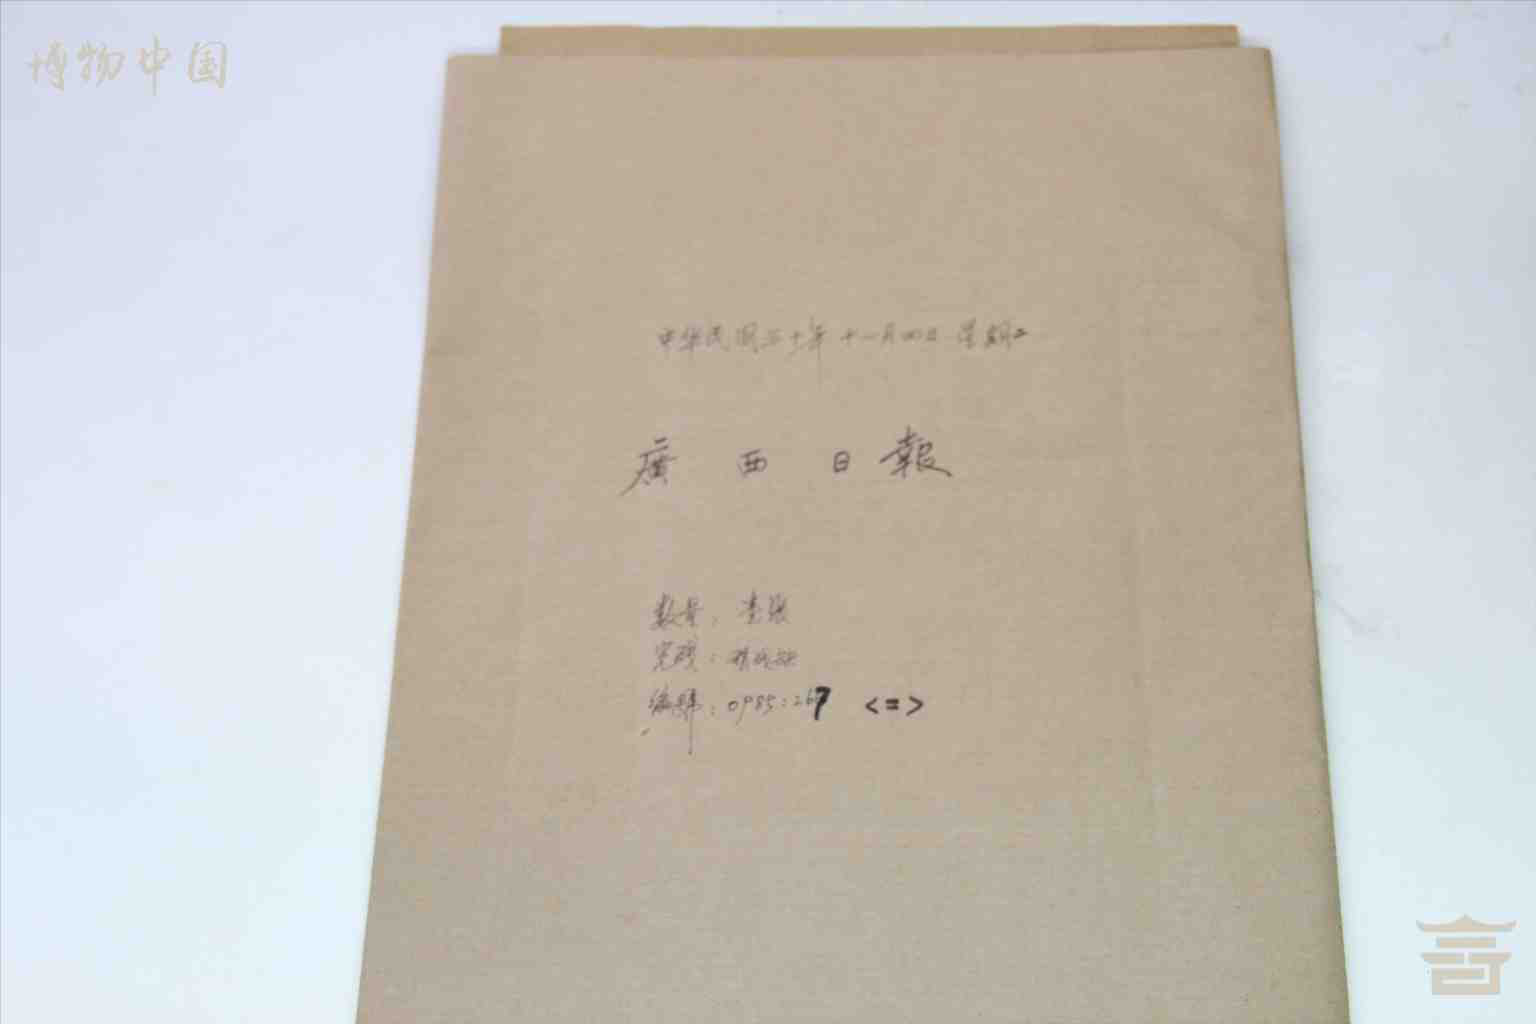 博物中国
中华民国三十年 十一月四日 星期二
廣西日報
数量：壹张
完残：稍残缺
编號：0985:267 <=>